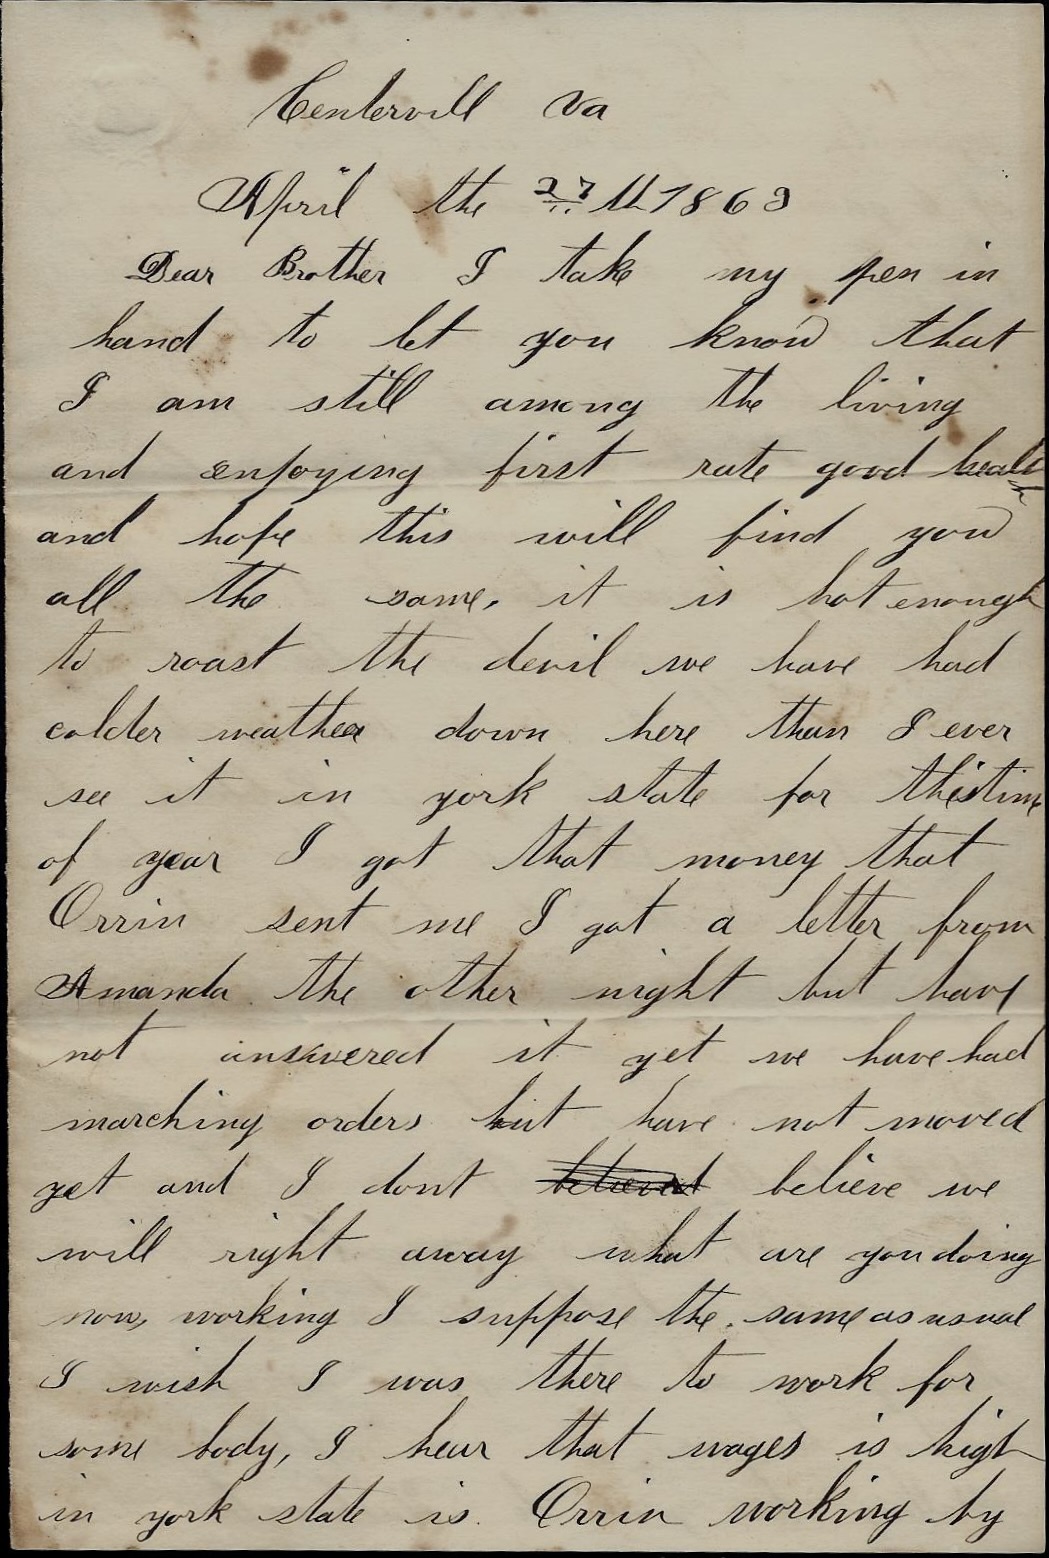 Centervill Va
April the 27 th 1863
Dear Brother I take my pen in
hand to let you know that
I am still among the living
and enjoying first rate good health
and hope this will find you
all the same, it is hot enough
to roast the devil we have had
colder weather down here than I ever
see it in york state for this time
of year I got that money that
Orrin sent me I got a letter from
Amanda the other night but have
not answered it yet we have had
marching orders but have not moved
yet and I dont believe we
will right away what are you doing
now, working I suppose the same as usual
I wish I was there to work for
some body, I hear that wages is high
in york state is Orrin working by